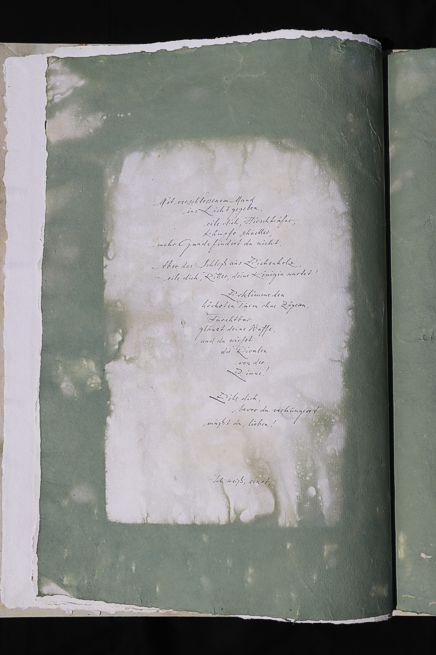 Mit verschlossenem Mund
ins Licht gegeben,
eile dich, Hirschkäfer,
kämpfe schneller,
mehr Gnade findest du nicht.
Aber das Schloß aus Eichenholz
eile dich, Ritter, deine Königin wartet!
Erklimme den
höchsten Turm ohne Zögern
Furchtbar
glänzt deine Waffe,
und du wirfst
die Rivalen
von der
Zinne!
Eile dich,
bevor du verhungerst
mußt du, lieben!
Ich weiß, sonst,